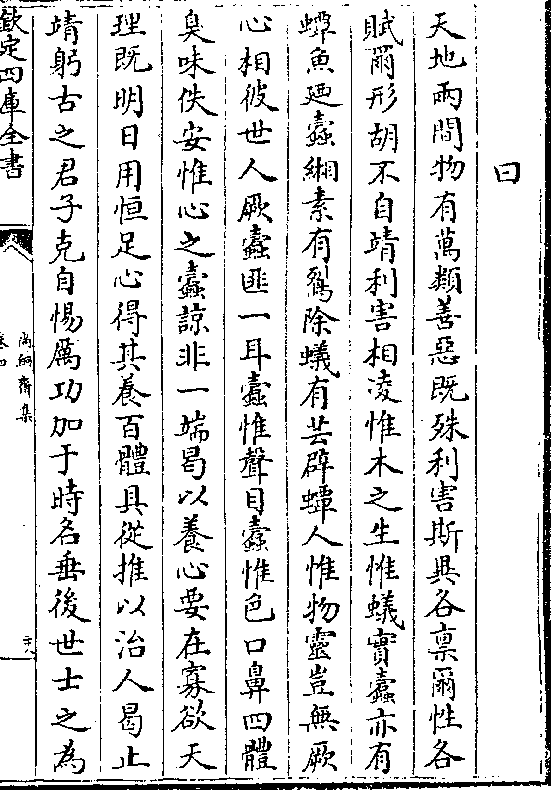 曰
天地兩間物有萬類善惡既殊利害斯興各稟爾性各
賦爾形胡不自靖利害相凌惟木之生惟蟻實蠹亦有
蟫魚廼蠹緗素有鴷除蟻有芸辟蟫人惟物靈豈無厥
心相彼世人厥蠹匪一耳蠹惟聲目蠹惟色口鼻四體
臭味佚安惟心之蠹諒非一端曷以養心要在寡欲天
理既明日用恒足心得其養百體具從推以治人曷止
靖躬古之君子克自惕厲功加于時名垂後世士之為
欽定四庫全書
尚絅齋集
卷四
二十八